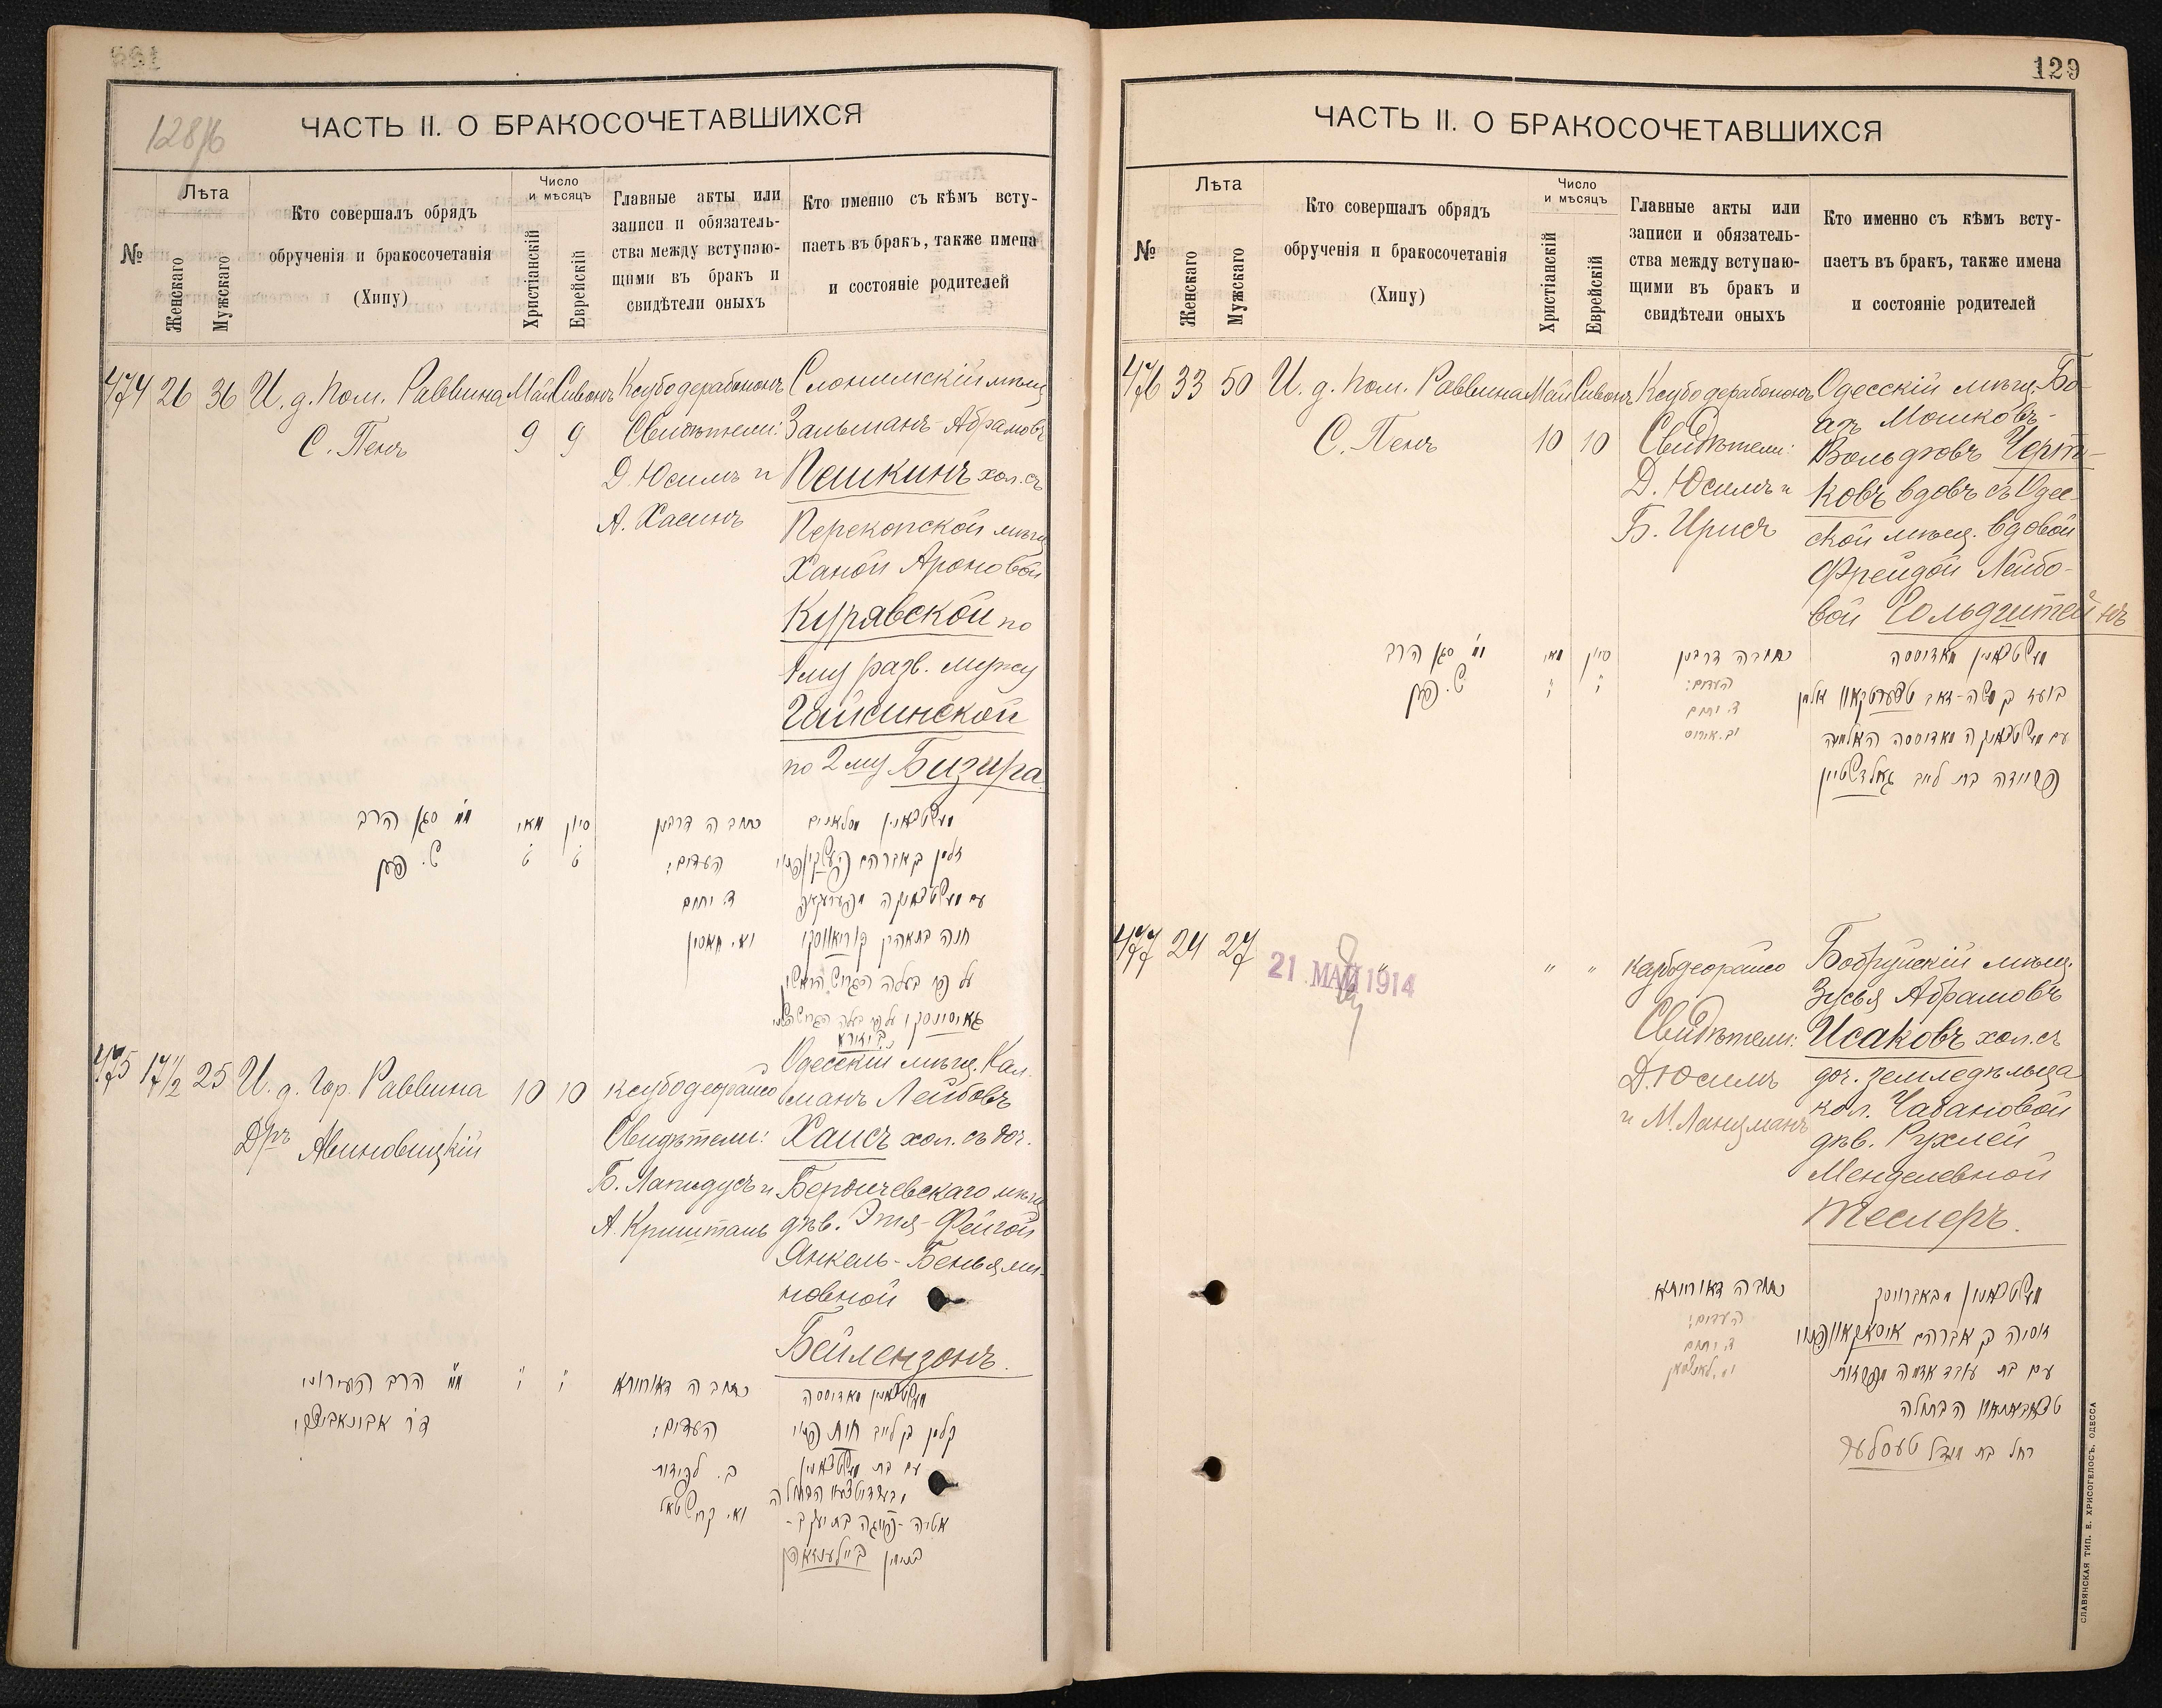 128/б
ЧАСТЬ II. О БРАКОСОЧЕТАВШИХСЯ
№
Лѣта
Женскаго
Мужскаго
Кто совершалъ обрядъ
обрученія и бракосочетанія
(Хипу)
Число
и мѣсяцъ
Христіанскій
Еврейскій
Главные акты или
записи и обязатель-
ства между вступаю-
щими въ бракъ и
свидѣтели оныхъ
Кто именно съ кѣмъ всту-
паетъ въ бракъ, также имена
и состояніе родителей
474 26 36
И. д. Пом. Раввина
С. Пенъ
Май Сивонъ
9 9
Ксубодерабононъ
Свидѣтели:
Д. Юсимъ и
А. Хасинъ
Слонимскій мѣщ.
Зальманъ Абрамовъ
Пешкинъ хол. съ
Перекопской мѣщ.
Ханой Ароновой
Курявской по
1му разв. мужу
Гайсинской
по 2му Бизира
סגן הרב
ש. פען
מאי סיון
ט ט
כתובה דרבנן
העדים:
ד. יוסים
475 17 1/2 25
И. д. Гор. Раввина
Дръ Авиновицкій
10 10
Ксубодеорайсо
Свидѣтели:
Б. Лапидусъ и
А. Кришталь
Одесскій мѣщ. Кал-
манъ Лейбовъ
Хаисъ хол. съ доч.
Бердичевскаго мѣщ.
дѣв. Этя-Фейгой
Янкель-Беньями-
новной
Бейлензонъ.
הרב העירוני
כתובה דאורייתא
העדים:
ב. לפידוס
קלמן בן לייב
129
ЧАСТЬ II. О БРАКОСОЧЕТАВШИХСЯ
№
Лѣта
Женскаго
Мужскаго
Кто совершалъ обрядъ
обрученія и бракосочетанія
(Хипу)
Число
и мѣсяцъ
Христіанскій
Еврейскій
Главные акты или
записи и обязатель-
ства между вступаю-
щими въ бракъ и
свидѣтели оныхъ
Кто именно съ кѣмъ всту-
паетъ въ бракъ, также имена
и состояніе родителей
476 33 50
И. д. Пом. Раввина
С. Пенъ
Май Сивонъ
10 10
Ксубодерабононъ
Свидѣтели:
Д. Юсимъ и
Б. Ирисъ
Одесскій мѣщ. Бо-
азъ Мошковъ-
Вольфовъ Черт-
ковъ вдовъ съ Одес-
ской мѣщ. вдовой
Фрейдой Лейбо-
вой Гольдштейнъ
סגן הרב
ש. פען
מאי סיון
י י
כתובה דרבנן
העדים:
ד. יוסים
פריידה בת לייב גאלדשטיין
477 24 27
" " "
21 МАЙ 1914
Ксубодеорайсо
Свидѣтели:
Д. Юсимъ
и М. Ланцманъ
Бобруйскій мѣщ.
Зусья Абрамовъ
Исаковъ хол. съ
доч. земледѣльца
кол. Чабановой
дѣв. Рухлей
Менделевной
Теслеръ.
כתובה דאורייתא
העדים:
ד. יוסים
רחל בת מנדל טעסלער
СЛАВЯНСКАЯ ТИП. Е. ХРИСОГЕЛОСЪ. ОДЕССА